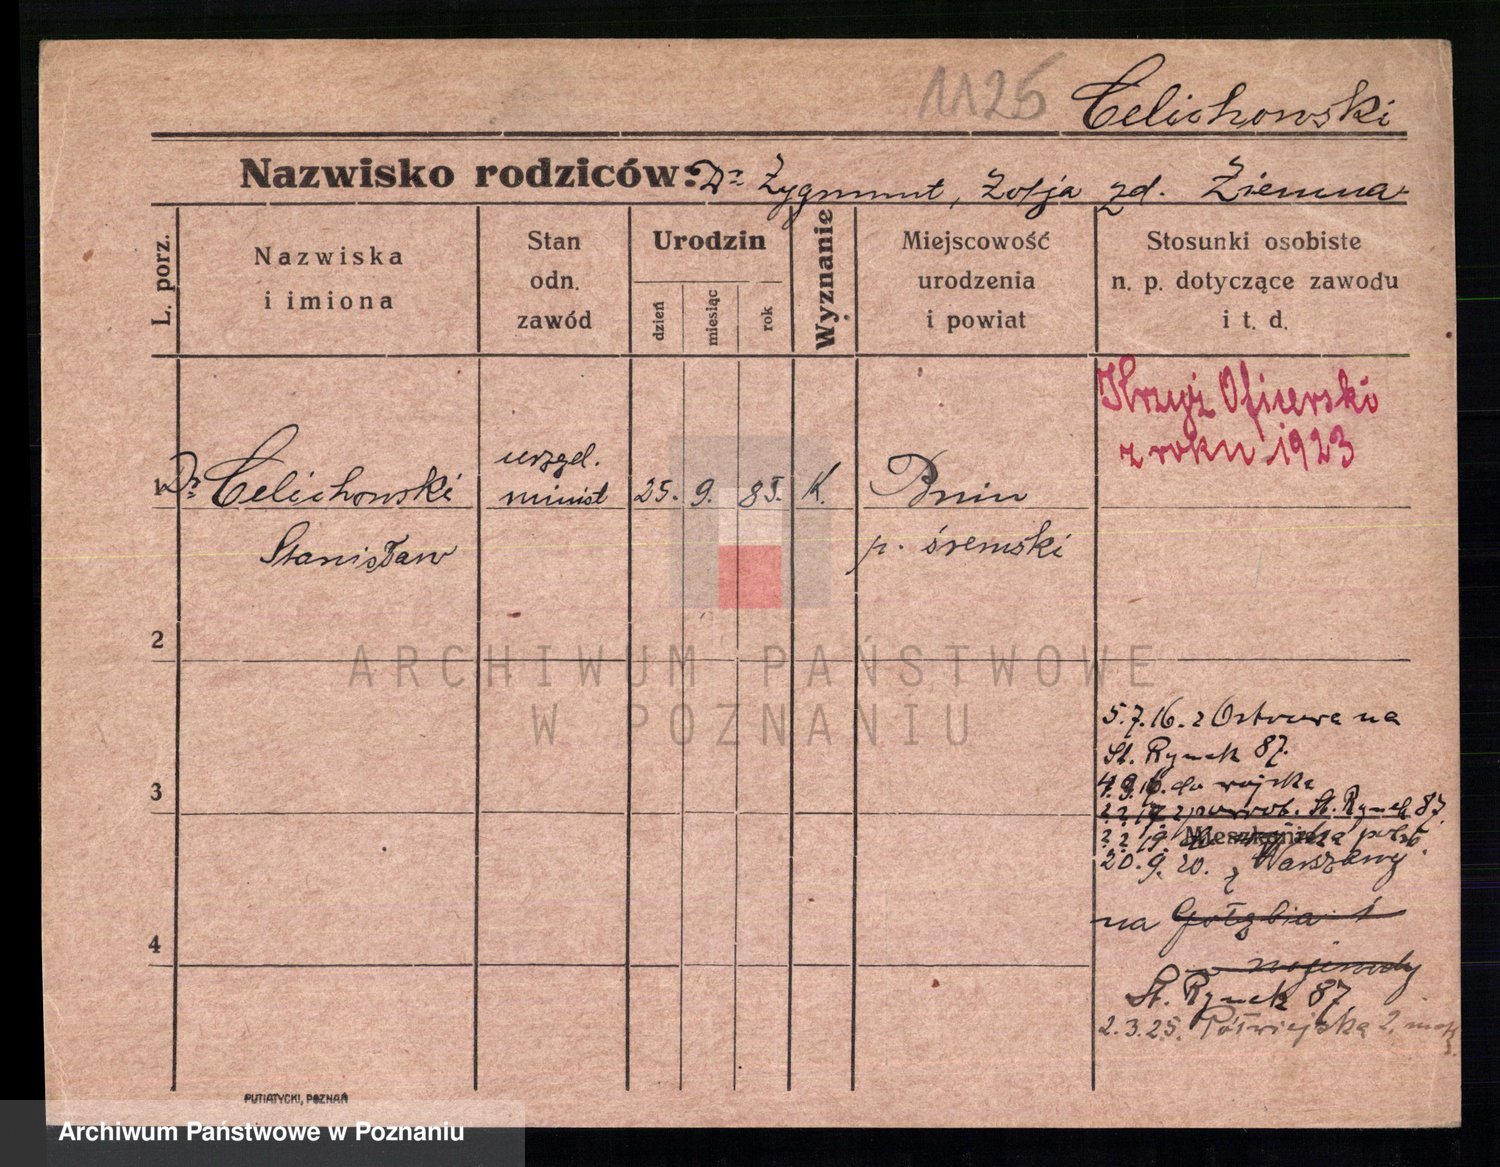 1125 Celichowski
Nazwisko rodziców: Dr Zygmunt, Zofja zd. Ziemna
L. porz.
Nazwiska
i imiona
Stan
odn.
zawód
Urodzin
dzień
miesiąc
rok
Wyznanie
Miejscowość
urodzenia
i powiat
Stosunki osobiste
n. p. dotyczące zawodu
i t. d.
Krzyż Oficerski
z roku 1923
1 Dr Celichowski
Stanisław
urzęd.
minist
25. 9. 85. K.
Bnin
p. śremski
2
3
4
5.7.16. z Ostrowa na
St. Rynek 87.
4.9.16. do wojska
2.2.19 z powrob. St. Rynek 87.
2.2.19. do
Mieszkanie
20.9.20. z Warszawy
na Gołębia 1
St. Rynek 87
2.3.25. Półwiejska 2.
PUTIATYCKI, POZNAŃ
ARCHIWUM PAŃSTWOWE
W POZNANIU
Archiwum Państwowe w Poznaniu